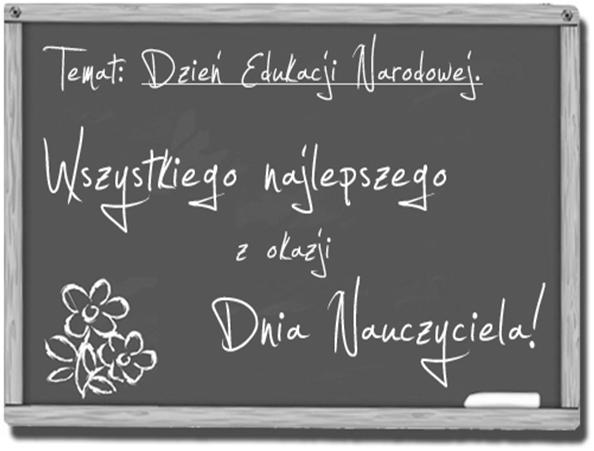 Temat: Dzień Edukacji Narodowej.
Wszystkiego najlepszego
z okazji
Dnia Nauczyciela!